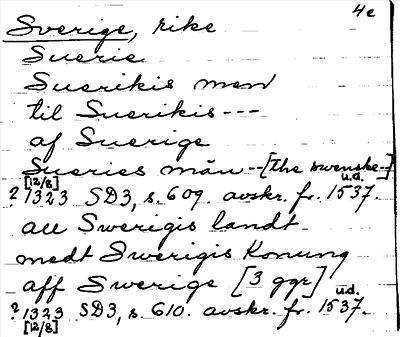 4e
Sverige, rike
Suerie
Suerikis men
til Suerikis ---
af Suerige
Sueries män -- [the swenske--]
[12/8] u.d.
? 1323 SD3, s. 609. avskr. fr. 1537.
all Swerigis landt
medt Swerigis Konung
aff Swerige [3 ggr]
u.d.
? 1323 SD3, s. 610. avskr. fr. 1537.
[12/8]